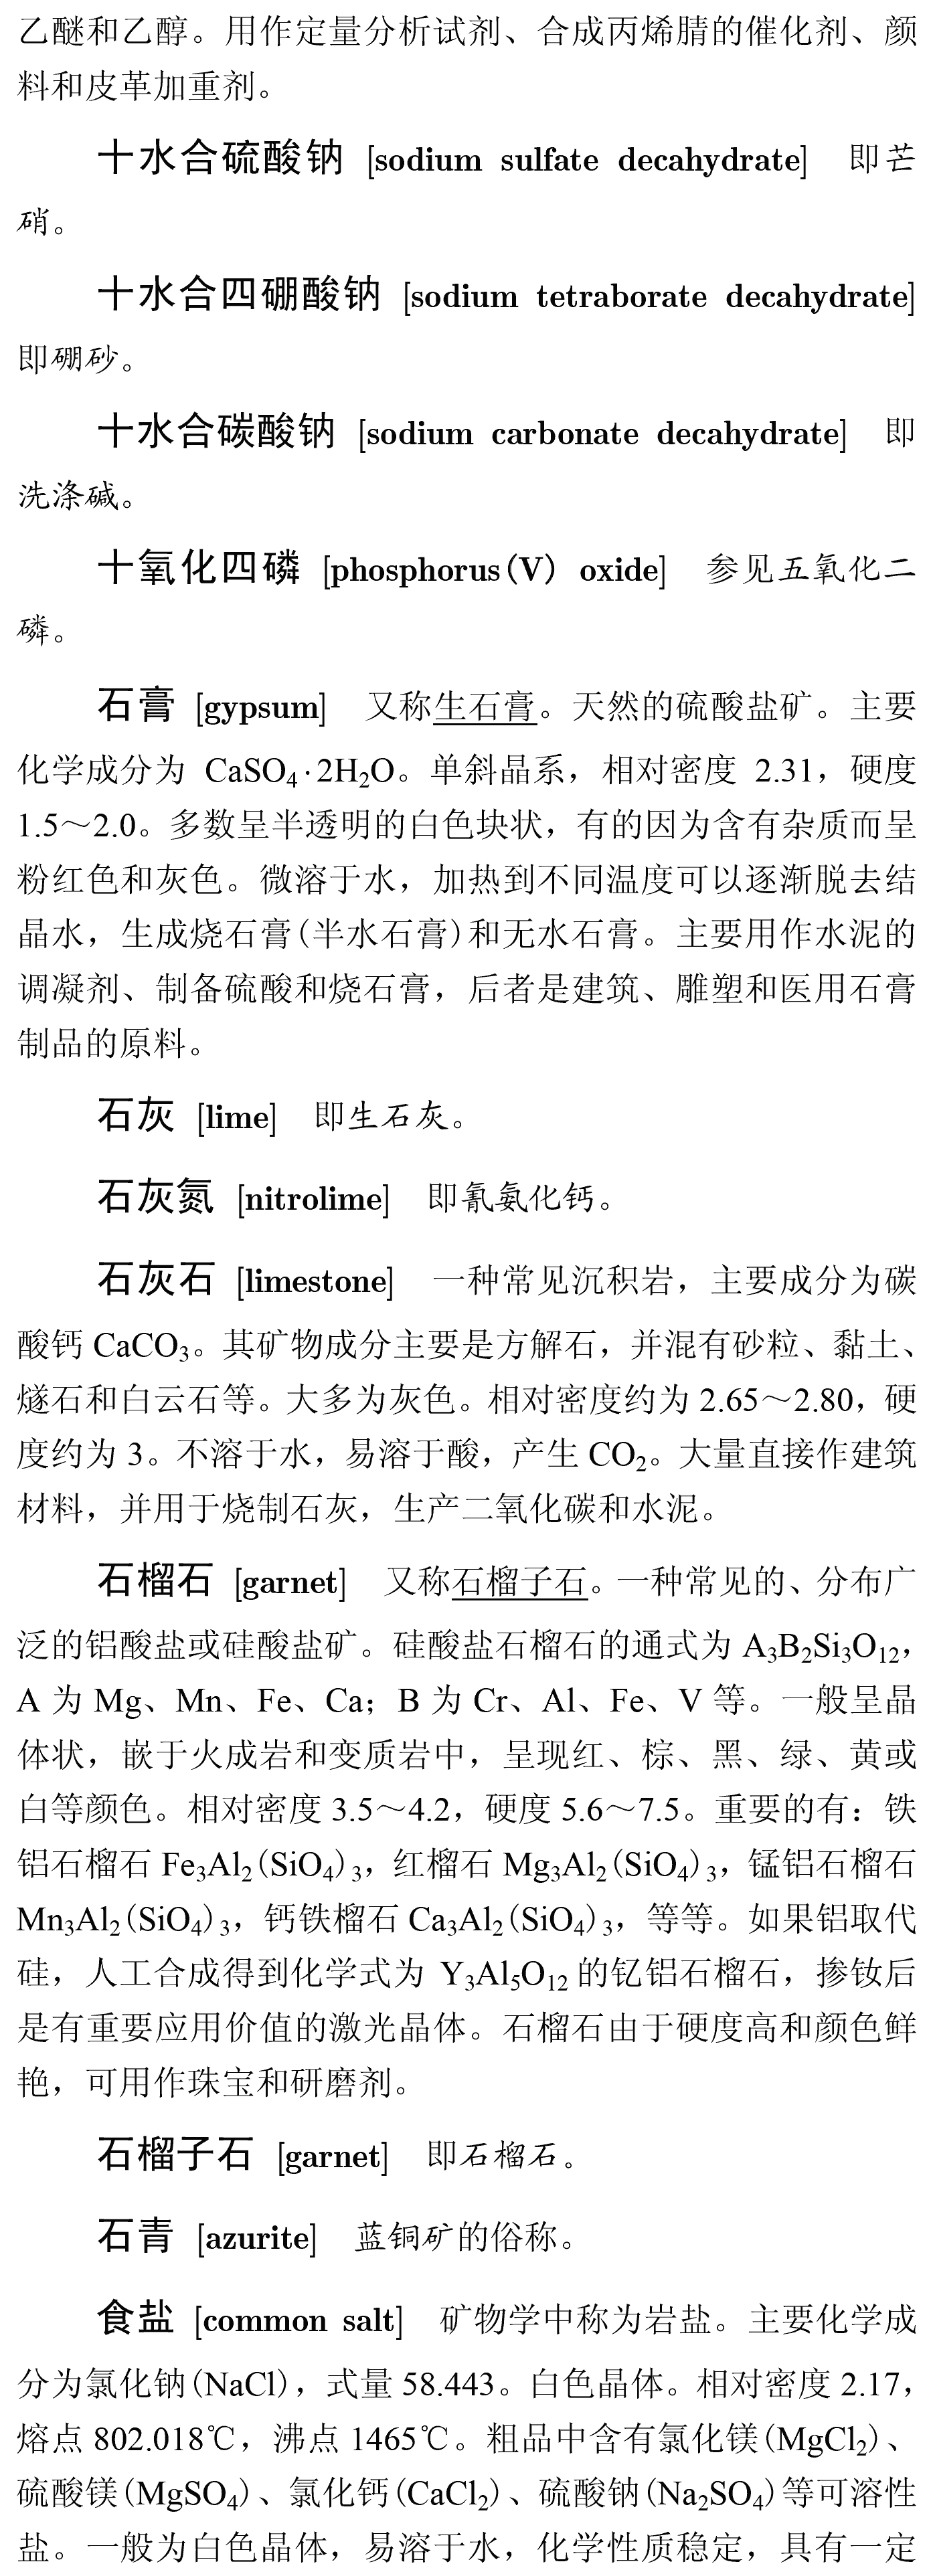 乙醚和乙醇。用作定量分析试剂、合成丙烯腈的催化剂、颜
料和皮革加重剂。
十水合硫酸钠 [sodium sulfate decahydrate] 即芒
硝。
十水合四硼酸钠 [sodium tetraborate decahydrate]
即硼砂。
十水合碳酸钠 [sodium carbonate decahydrate] 即
洗涤碱。
十氧化四磷 [phosphorus(V) oxide] 参见五氧化二
磷。
石膏 [gypsum] 又称生石膏。天然的硫酸盐矿。主要
化学成分为 CaSO₄·2H₂O。单斜晶系，相对密度 2.31，硬度
1.5～2.0。多数呈半透明的白色块状，有的因为含有杂质而呈
粉红色和灰色。微溶于水，加热到不同温度可以逐渐脱去结
晶水，生成烧石膏(半水石膏)和无水石膏。主要用作水泥的
调凝剂、制备硫酸和烧石膏，后者是建筑、雕塑和医用石膏
制品的原料。
石灰 [lime] 即生石灰。
石灰氮 [nitrolime] 即氰氨化钙。
石灰石 [limestone] 一种常见沉积岩，主要成分为碳
酸钙 CaCO₃。其矿物成分主要是方解石，并混有砂粒、黏土、
燧石和白云石等。大多为灰色。相对密度约为 2.65～2.80，硬
度约为 3。不溶于水，易溶于酸，产生 CO₂。大量直接作建筑
材料，并用于烧制石灰，生产二氧化碳和水泥。
石榴石 [garnet] 又称石榴子石。一种常见的、分布广
泛的铝酸盐或硅酸盐矿。硅酸盐石榴石的通式为 A₃B₂Si₃O₁₂，
A 为 Mg、Mn、Fe、Ca；B 为 Cr、Al、Fe、V 等。一般呈晶
体状，嵌于火成岩和变质岩中，呈现红、棕、黑、绿、黄或
白等颜色。相对密度 3.5～4.2，硬度 5.6～7.5。重要的有：铁
铝石榴石 Fe₃Al₂(SiO₄)₃，红榴石 Mg₃Al₂(SiO₄)₃，锰铝石榴石
Mn₃Al₂(SiO₄)₃，钙铁榴石 Ca₃Al₂(SiO₄)₃，等等。如果铝取代
硅，人工合成得到化学式为 Y₃Al₅O₁₂ 的钇铝石榴石，掺钕后
是有重要应用价值的激光晶体。石榴石由于硬度高和颜色鲜
艳，可用作珠宝和研磨剂。
石榴子石 [garnet] 即石榴石。
石青 [azurite] 蓝铜矿的俗称。
食盐 [common salt] 矿物学中称为岩盐。主要化学成
分为氯化钠(NaCl)，式量 58.443。白色晶体。相对密度 2.17，
熔点 802.018℃，沸点 1465℃。粗品中含有氯化镁(MgCl₂)、
硫酸镁(MgSO₄)、氯化钙(CaCl₂)、硫酸钠(Na₂SO₄)等可溶性
盐。一般为白色晶体，易溶于水，化学性质稳定，具有一定